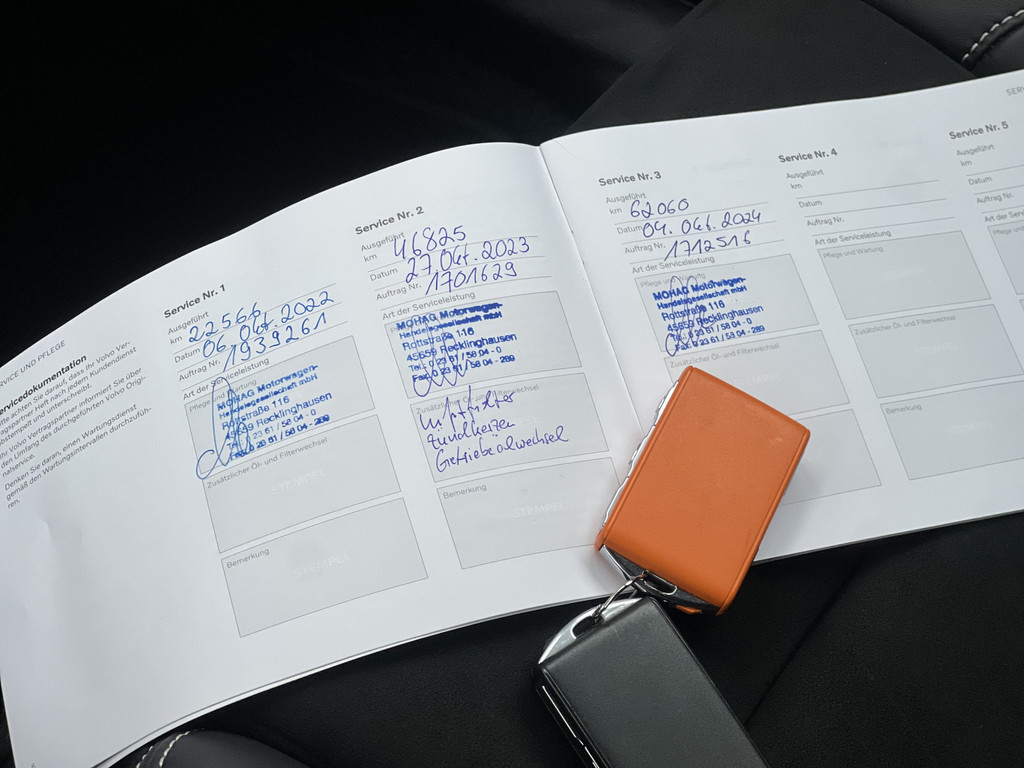 VICE UND PFLEGE
rvicedokumentation
tte achten Sie darauf, dass Ihr Volvo Ver-
tragspartner Ihr Heft nach jedem Kundendienst
abstempelt und unterschreibt.
Ihr Volvo Vertragspartner informiert Sie über
den Umfang des durchgeführten Volvo Origi-
nalservice.
Denken Sie daran, einen Wartungsdienst
gemäß den Wartungsintervallen durchzufüh-
ren.
Service Nr. 1
Ausgeführt
km 22566
Datum 06. Okt. 2022
Auftrag Nr. 1939261
Art der Serviceleistung
Pflege und Wartung
MOHAG Motorwagen-
Handelsgesellschaft mbH
Rottstraße 116
45659 Recklinghausen
Tel. 0 23 61 / 58 04 - 0
Fax 0 23 61 / 58 04 - 289
Zusätzlicher Öl- und Filterwechsel
STEMPEL
Bemerkung
STEMPEL
Service Nr. 2
Ausgeführt
km 46825
Datum 27. Okt. 2023
Auftrag Nr. 1701629
Art der Serviceleistung
MOHAG Motorwagen-
Handelsgesellschaft mbH
Rottstraße 116
45659 Recklinghausen
Tel. 0 23 61 / 58 04 - 0
Fax 0 23 61 / 58 04 - 289
Zusätzlicher Öl- und Filterwechsel
Zündkerzen
Getriebeölwechsel
Bemerkung
STEMPEL
Service Nr. 3
Ausgeführt
km 62060
Datum 04. Okt. 2024
Auftrag Nr. 1712516
Art der Serviceleistung
Pflege und Wartung
MOHAG Motorwagen-
Handelsgesellschaft mbH
Rottstraße 116
45659 Recklinghausen
Tel. 0 23 61 / 58 04 - 0
Fax 0 23 61 / 58 04 - 289
Zusätzlicher Öl- und Filterwechsel
Service Nr. 4
Ausgeführt
km
Datum
Auftrag Nr.
Art der Serviceleistung
Pflege und Wartung
Zusätzlicher Öl- und Filterwechsel
Bemerkung
SERV
Service Nr. 5
Ausgeführt
km
Datum
Auftrag Nr.
Art der Servic
Pflege und
Zusätzlich
Bemerk